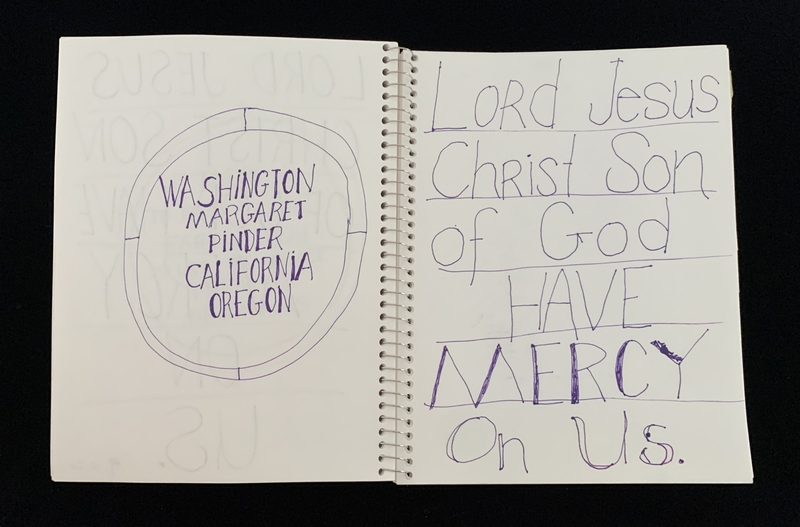 WASHINGTON
MARGARET
PINDER
CALIFORNIA
OREGON
Lord Jesus
Christ Son
of God
HAVE
MERCY
On Us.